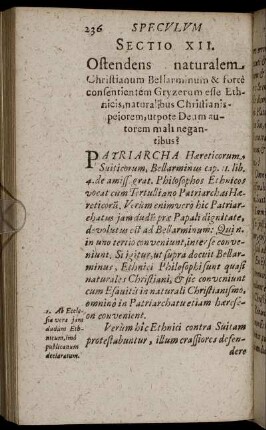 236 SPECULUM
SECTIO XII.
Ostendens naturalem
Christianum Bellarminum & fortè
consentientem Gryzerum esse Eth-
nicis, naturalibus Christianis
peiorem, utpote Deum au-
torem mali negan-
tibus?
PATRIARCHA Hæreticorum
Suiticorum, Bellarminus cap. 11. lib.
4. de amiss. grat. Philosophos Ethnicos
vocat cum Tertulliano Patriarchas Hæ-
reticorũ. Verùm enimverò hic Patriar-
chatus jamdudũ præ Papali dignitate,
devolutus est ad Bellarminum: Qui n.
in uno tertio conveniunt, inter se conve-
niunt. Si igitur, ut supra docuit Bellar-
minus, Ethnici Philosophi sunt quasi
naturales Christiani, & sic conveniunt
cum Esauitis in naturali Christianismo,
omninò in Patriarchatu etiam hærese-
on convenient.
1. Ab Eccle-
sia vera jam
dudum Eth-
nicum, imò
publicanum
declaratum.
Verùm hîc Ethnici contra Suitam
protestabuntur, illum crassiores defen-
dere